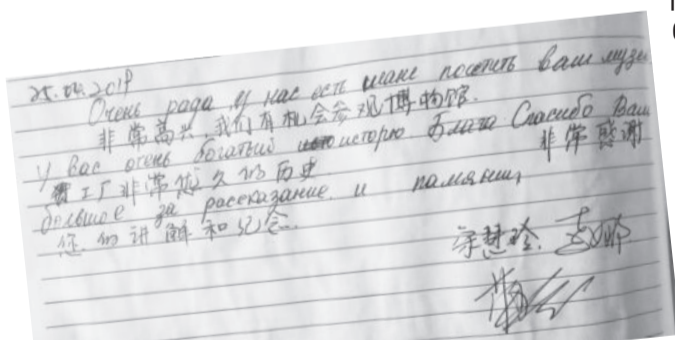 25.04.2019
Очень рада у нас есть шанс посетить ваш музе
非常高兴,我们有机会参观博物馆.
У Вас очень богатый историю Блага Спасибо Вам
贵工厂非常悠久的历史 非常感谢
большое за рассказание и памяти,
您的讲解和纪念.
宋慧玲.